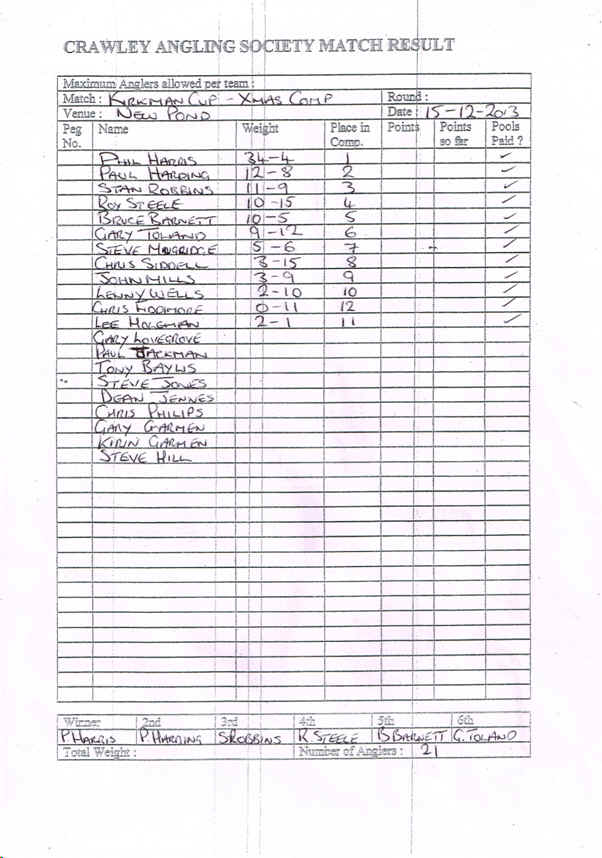 CRAWLEY ANGLING SOCIETY MATCH RESULT
Maximum Anglers allowed per team :
Match : KIRKMAN CUP - XMAS COMP Round :
Venue : NEW POND Date : 15-12-2013
Peg No. Name Weight Place in Comp. Points Points so far Pools Paid ?
PHIL HARRIS 34-4 1 ✓
PAUL HARDING 12-8 2 ✓
STAN ROBBINS 11-9 3 ✓
ROY STEELE 10-15 4 ✓
BRUCE BARNETT 10-5 5 ✓
GARY TOLAND 9-12 6 ✓
STEVE 5-6 7 ✓
CHRIS SIDDELL 3-15 8 ✓
JOHN MILLS 3-9 9 ✓
LENNY WELLS 2-10 10 ✓
CHRIS 0-11 12 ✓
LEE 2-1 11 ✓
GARY LOVEGROVE
PAUL JACKMAN
TONY
STEVE JONES
DEAN JENNES
CHRIS PHILIPS
GARY GARMEN
KIRIN GARMEN
STEVE HILL
Winner 2nd 3rd 4th 5th 6th
P HARRIS P HARDING S ROBBINS R STEELE B BARNETT G. TOLAND
Total Weight : Number of Anglers : 21